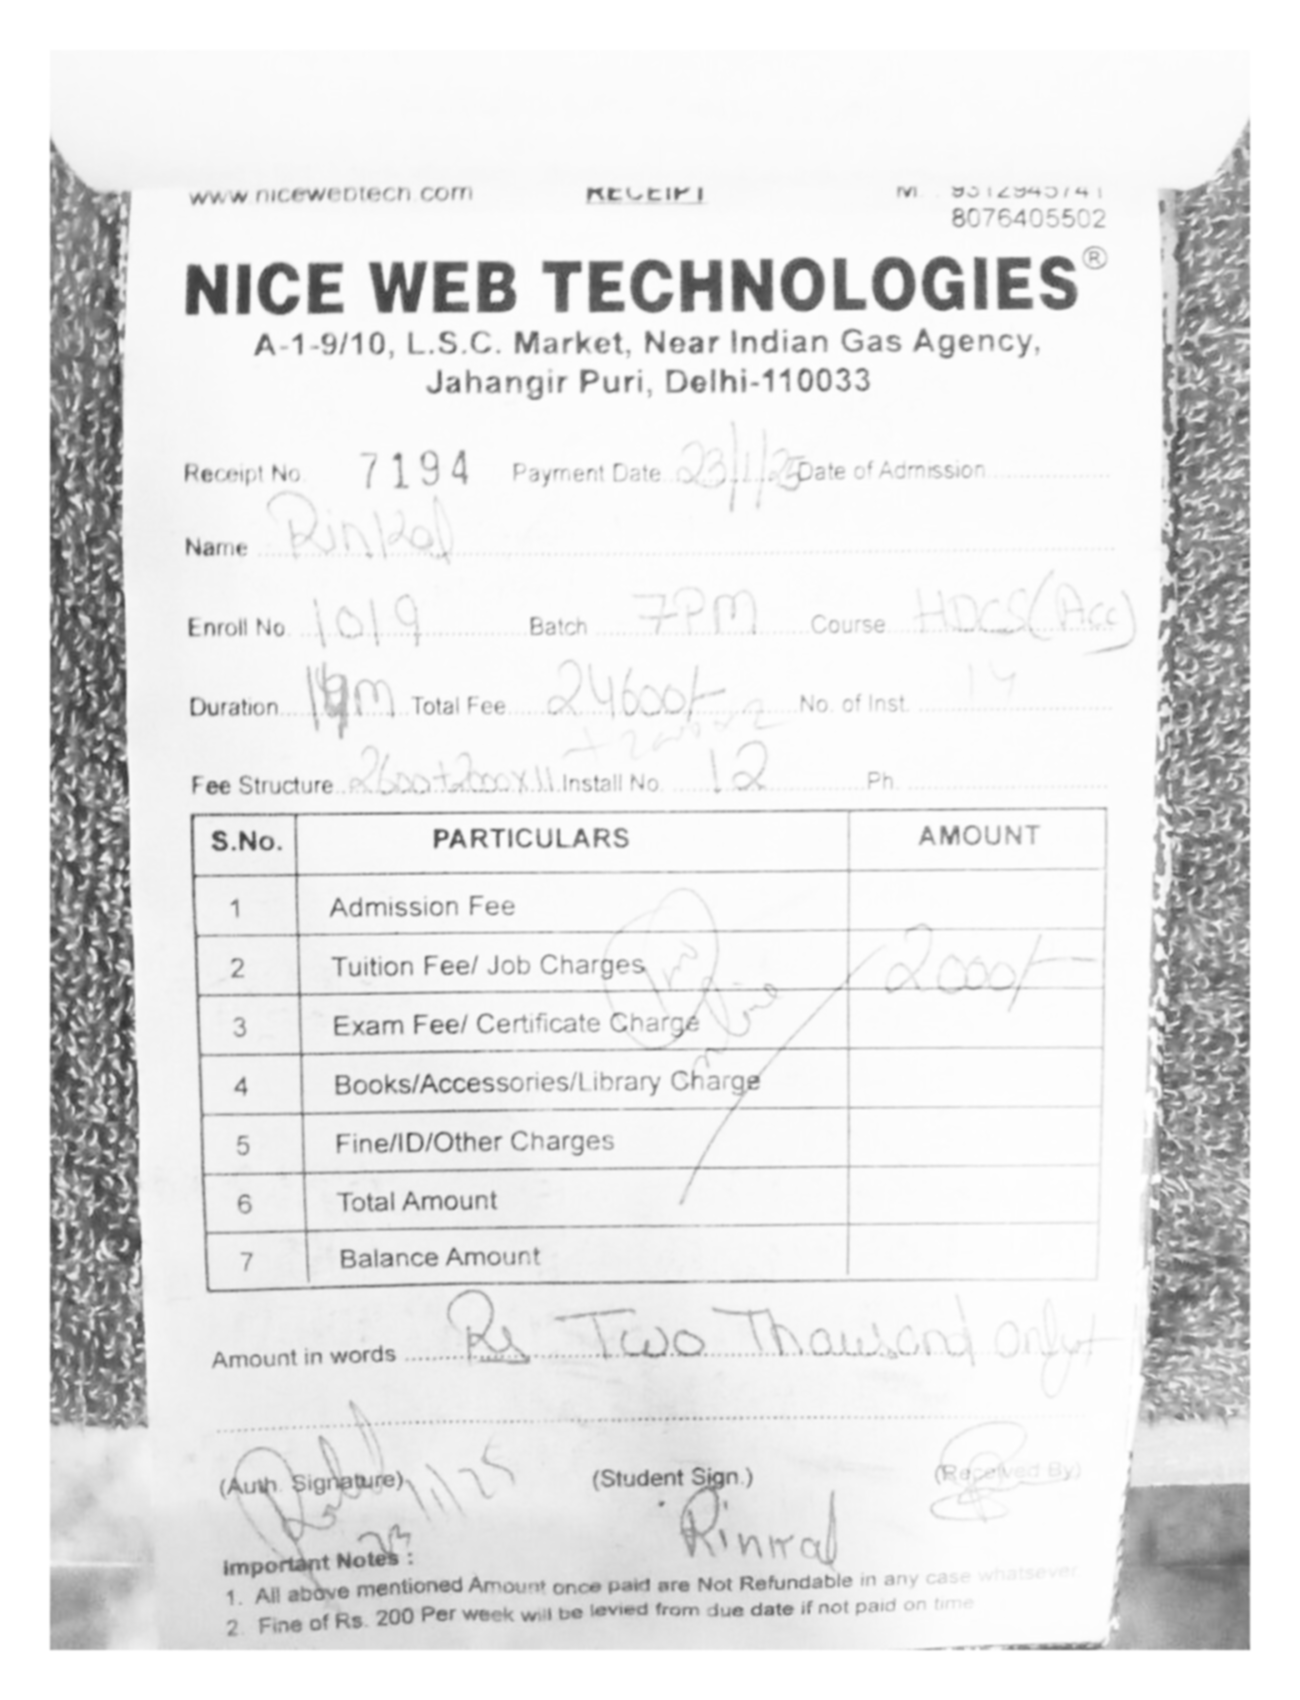 www.nicewebtech.com RECEIPT M. : 9312945741
8076405502
NICE WEB TECHNOLOGIES®
A-1-9/10, L.S.C. Market, Near Indian Gas Agency,
Jahangir Puri, Delhi-110033
Receipt No. 7194 Payment Date 23/1/25 Date of Admission
Name Rinkal
Enroll No. 1019 Batch 7PM Course HDCS(Acc)
Duration Total Fee 24600/- No. of Inst. 14
Fee Structure 2600+2000x11 Install No. 12 Ph.
S.No. PARTICULARS AMOUNT
1 Admission Fee
2 Tuition Fee/ Job Charges 2000/-
3 Exam Fee/ Certificate Charge
4 Books/Accessories/Library Charge
5 Fine/ID/Other Charges
6 Total Amount
7 Balance Amount
Amount in words Rs Two Thousand only
(Auth. Signature) (Student Sign.) (Received By)
23/1/25 Rinkal
Important Notes :
1. All above mentioned Amount once paid are Not Refundable in any case whatsever
2. Fine of Rs. 200 Per week will be levied from due date if not paid on time